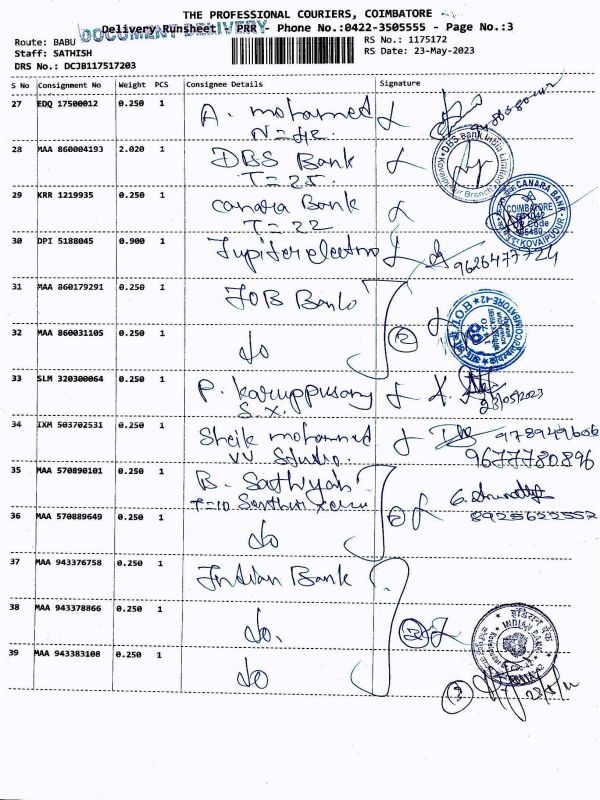 THE PROFESSIONAL COURIERS, COIMBATORE
DOCUMENT DELIVERY
Delivery Runsheet - PRR - Phone No.:0422-3505555 - Page No.:3
Route: BABU
RS No.: 1175172
Staff: SATHISH
RS Date: 23-May-2023
DRS No.: DCJB117517203
S No Consignment No Weight PCS Consignee Details Signature
27 EDQ 17500012 0.250 1 A. mohamed
28 MAA 860004193 2.020 1 DBS Bank
T=25.
DBS Bank India Limited
29 KRR 1219935 0.250 1 Canara Bank
T=22
CANARA BANK
COIMBATORE
KOVAIPUDUR
30 DPI 5188045 0.900 1 Jupiter electro
9626477724
31 MAA 860179291 0.250 1 IOB Bank
I.O.B.
COIMBATORE-42
32 MAA 860031105 0.250 1 do
2
33 SLM 320300064 0.250 1 P. Karuppusamy
S.X.
23/05/2023
34 IXM 503702531 0.250 1 Sheik mohammed
VV Studio.
9789499606
9677780896
35 MAA 570890101 0.250 1 B. Sathyab
T=10
36 MAA 570889649 0.250 1 do
2
8925622552
37 MAA 943376758 0.250 1 Indian Bank
38 MAA 943378866 0.250 1 do.
INDIAN BANK
39 MAA 943383108 0.250 1 do
3